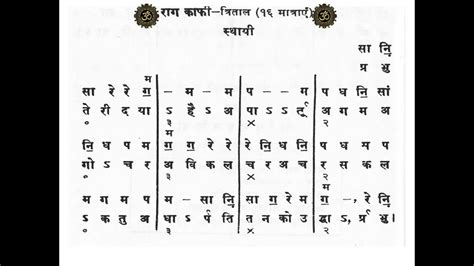 राग काफी–त्रिताल (१६ मात्राएँ)
स्थायी
सा नि॒
प्र भु
म
सा रे रे ग॒ – म – म प – – ग प ध नि॒ सां
ते री द या ऽ है ऽ अ पा ऽ ऽ तू अ ग म अ
० ३ × २
म
नि॒ ध प म ग॒ ग॒ रे रे रे नि॒ ध नि॒ प ध म प
गो ऽ च र अ वि क ल च र अ च र स क ल
० ३ × २
म
म ग म प म – सा नि॒ सा ग॒ रे म ग॒ –, रे नि॒
ऽ क तु अ धा ऽ र्प ति त न को उ द्धा ऽ, प्र भु।
० ३ × २